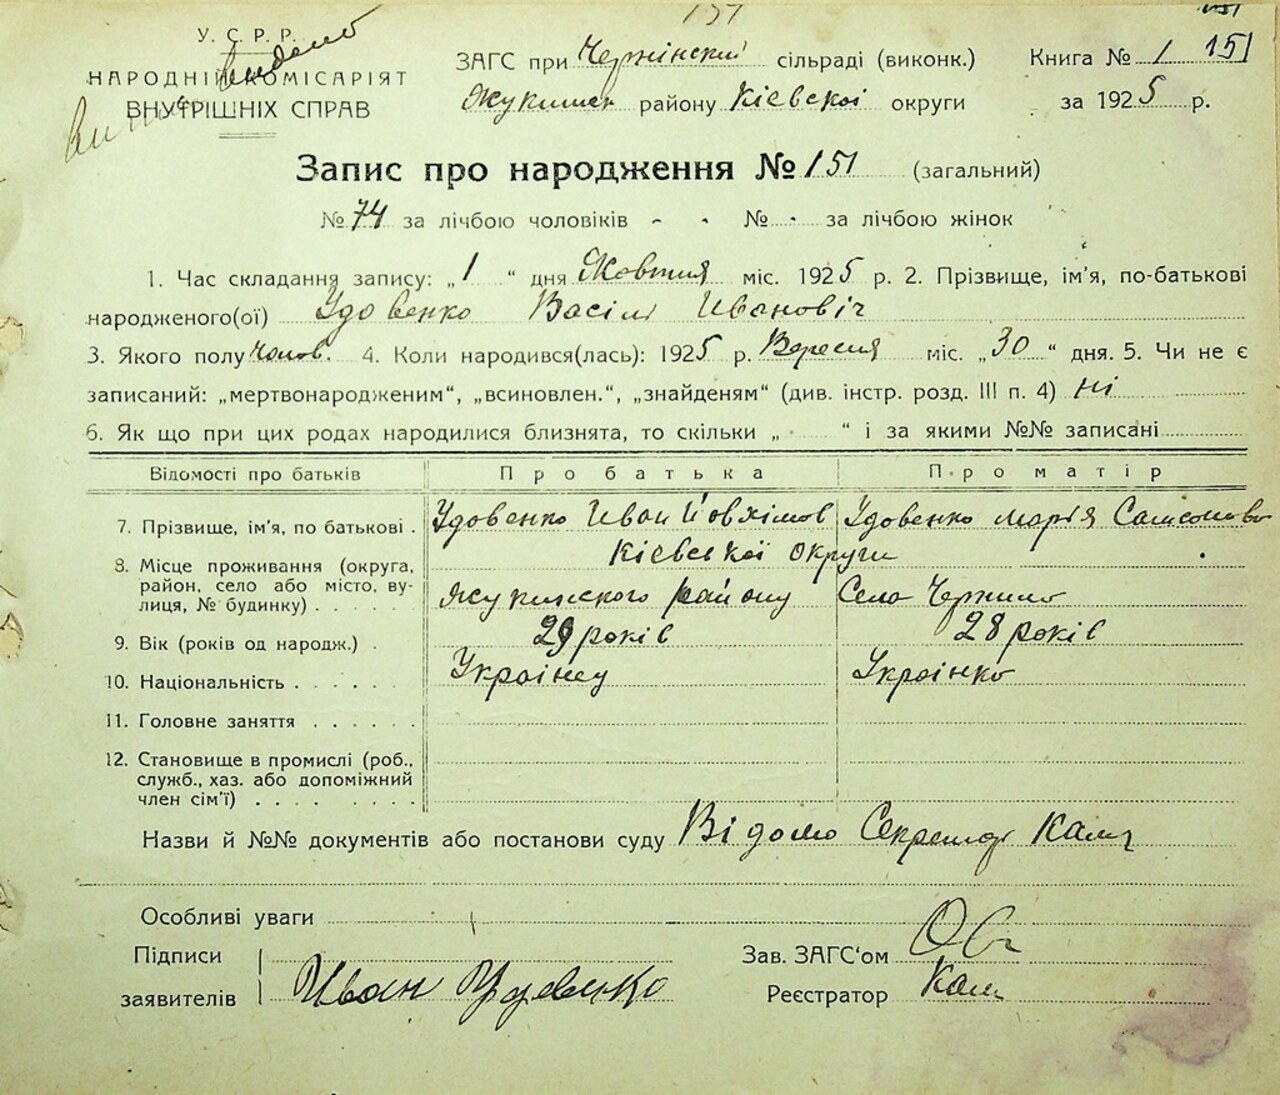 151
151
У. С. Р. Р.
НАРОДНІЙ КОМІСАРІЯТ
ВНУТРІШНІХ СПРАВ
видано
ЗАГС при Чернінский сільраді (виконк.)
району Кієвскоі округи
Книга № 1 151
за 1925 р.
Запис про народження № 151 (загальний)
№ 74 за лічбою чоловіків - - №. - за лічбою жінок
1. Час складання запису: „1 “ дня Жовтня міс. 1925 р. 2. Прізвище, ім'я, по-батькові
народженого(ої) Удовенко Васіль Ивановіч
3. Якого полу чолов. 4. Коли народився(лась): 1925 р. Вересня міс. „30 “ дня. 5. Чи не є
записаний: „мертвонародженим“, „всиновлен.“, „знайденям“ (див. інстр. розд. III п. 4) ні
6. Як що при цих родах народилися близнята, то скільки „ - “ і за якими №№ записані
Відомості про батьків Про батька Про матір
7. Прізвище, ім'я, по батькові . Удовенко Иван Йовхімов Удовенко Марія Самсоново
8. Місце проживання (округа, район, село або місто, ву-лиця, № будинку) . . . . . Кієвської Округи
району Село Чернино
9. Вік (років од народж.) . 29 років 28 років
10. Національність . . . . . . Українец Українко
11. Головне заняття . . . . . .
12. Становище в промислі (роб.,
служб., хаз. або допоміжний
член сім'ї) . . . . . . . .
Назви й №№ документів або постанови суду Відомо
Особливі уваги
Підписи
заявителів Иван Удовенко
Зав. ЗАГС‘ом
Реєстратор